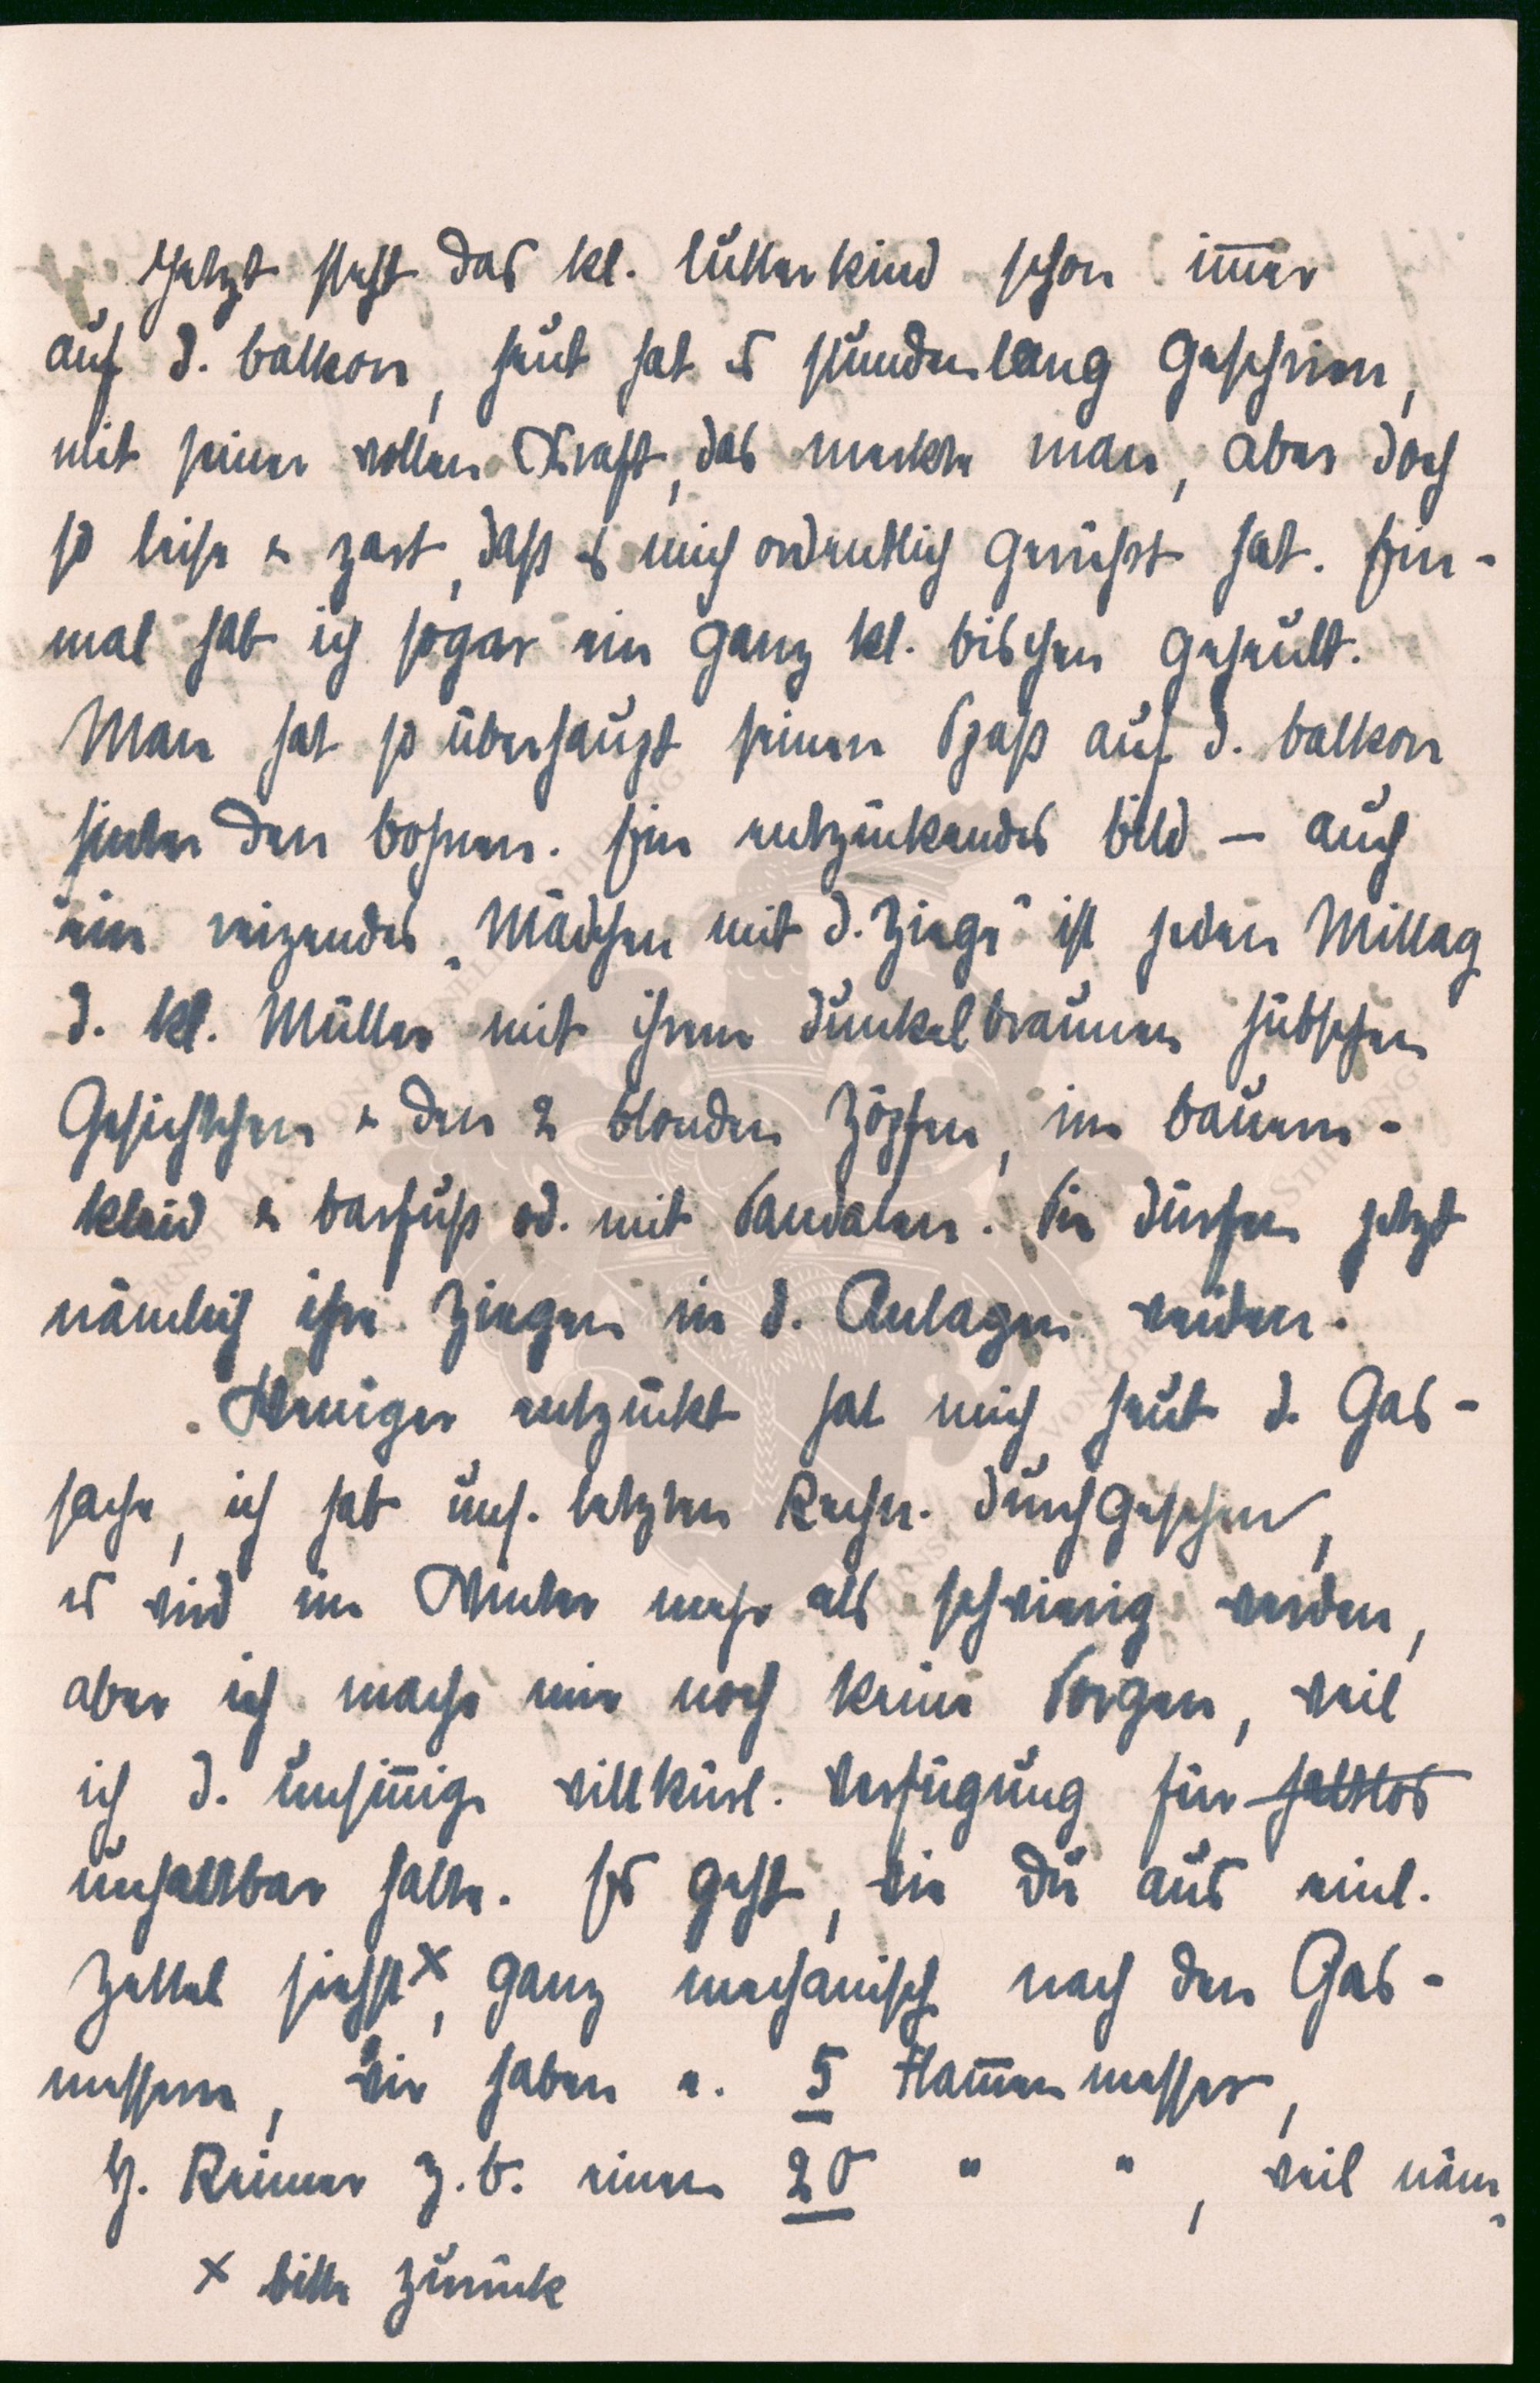 Jetzt steht das kl. Lütterkind schon im̅er
auf d. Balkon, heut hat es stundenlang geschrien,
mit seiner vollen Kraft, das merkte man, aber doch
so leise & zart, daß es mich ordentlich gerührt hat. Ein-
mal hab ich sogar ein ganz kl. bischen geheult.
Man hat so überhaupt seinen Spaß auf d. Balkon
hinter den Bohnen. Ein entzückendes Bild – auch
ein reizendes „Mädchen mit d. Ziege“ ist jeden Mittag
d. kl. Müller mit ihrem dunkelbraunen hübschen
Gesichtchen & den 2 blonden Zöpfen, im Bauern-
kleid & barfuß od. mit Sandalen. Sie dürfen jetzt
nämlich ihre Ziegen in d. Anlagen weiden.
Weniger entzückt hat mich heut d. Gas-
sache, ich hab uns. letzten Rechn. durchgesehen,
es wird im Winter mehr als schwierig werden,
aber ich mache mir noch keine Sorgen, weil
ich d. unsin̅ige willkürl. Verfügung für haltlos
unhaltbar halte. Es geht, wie Du aus einl.
Zettel siehst x, ganz mechanisch nach den Gas-
messern, wir haben e. 5 Flam̅enmesser,
H. Reimer z.B. einen 20 " ", weil näm-
x bitte zurück